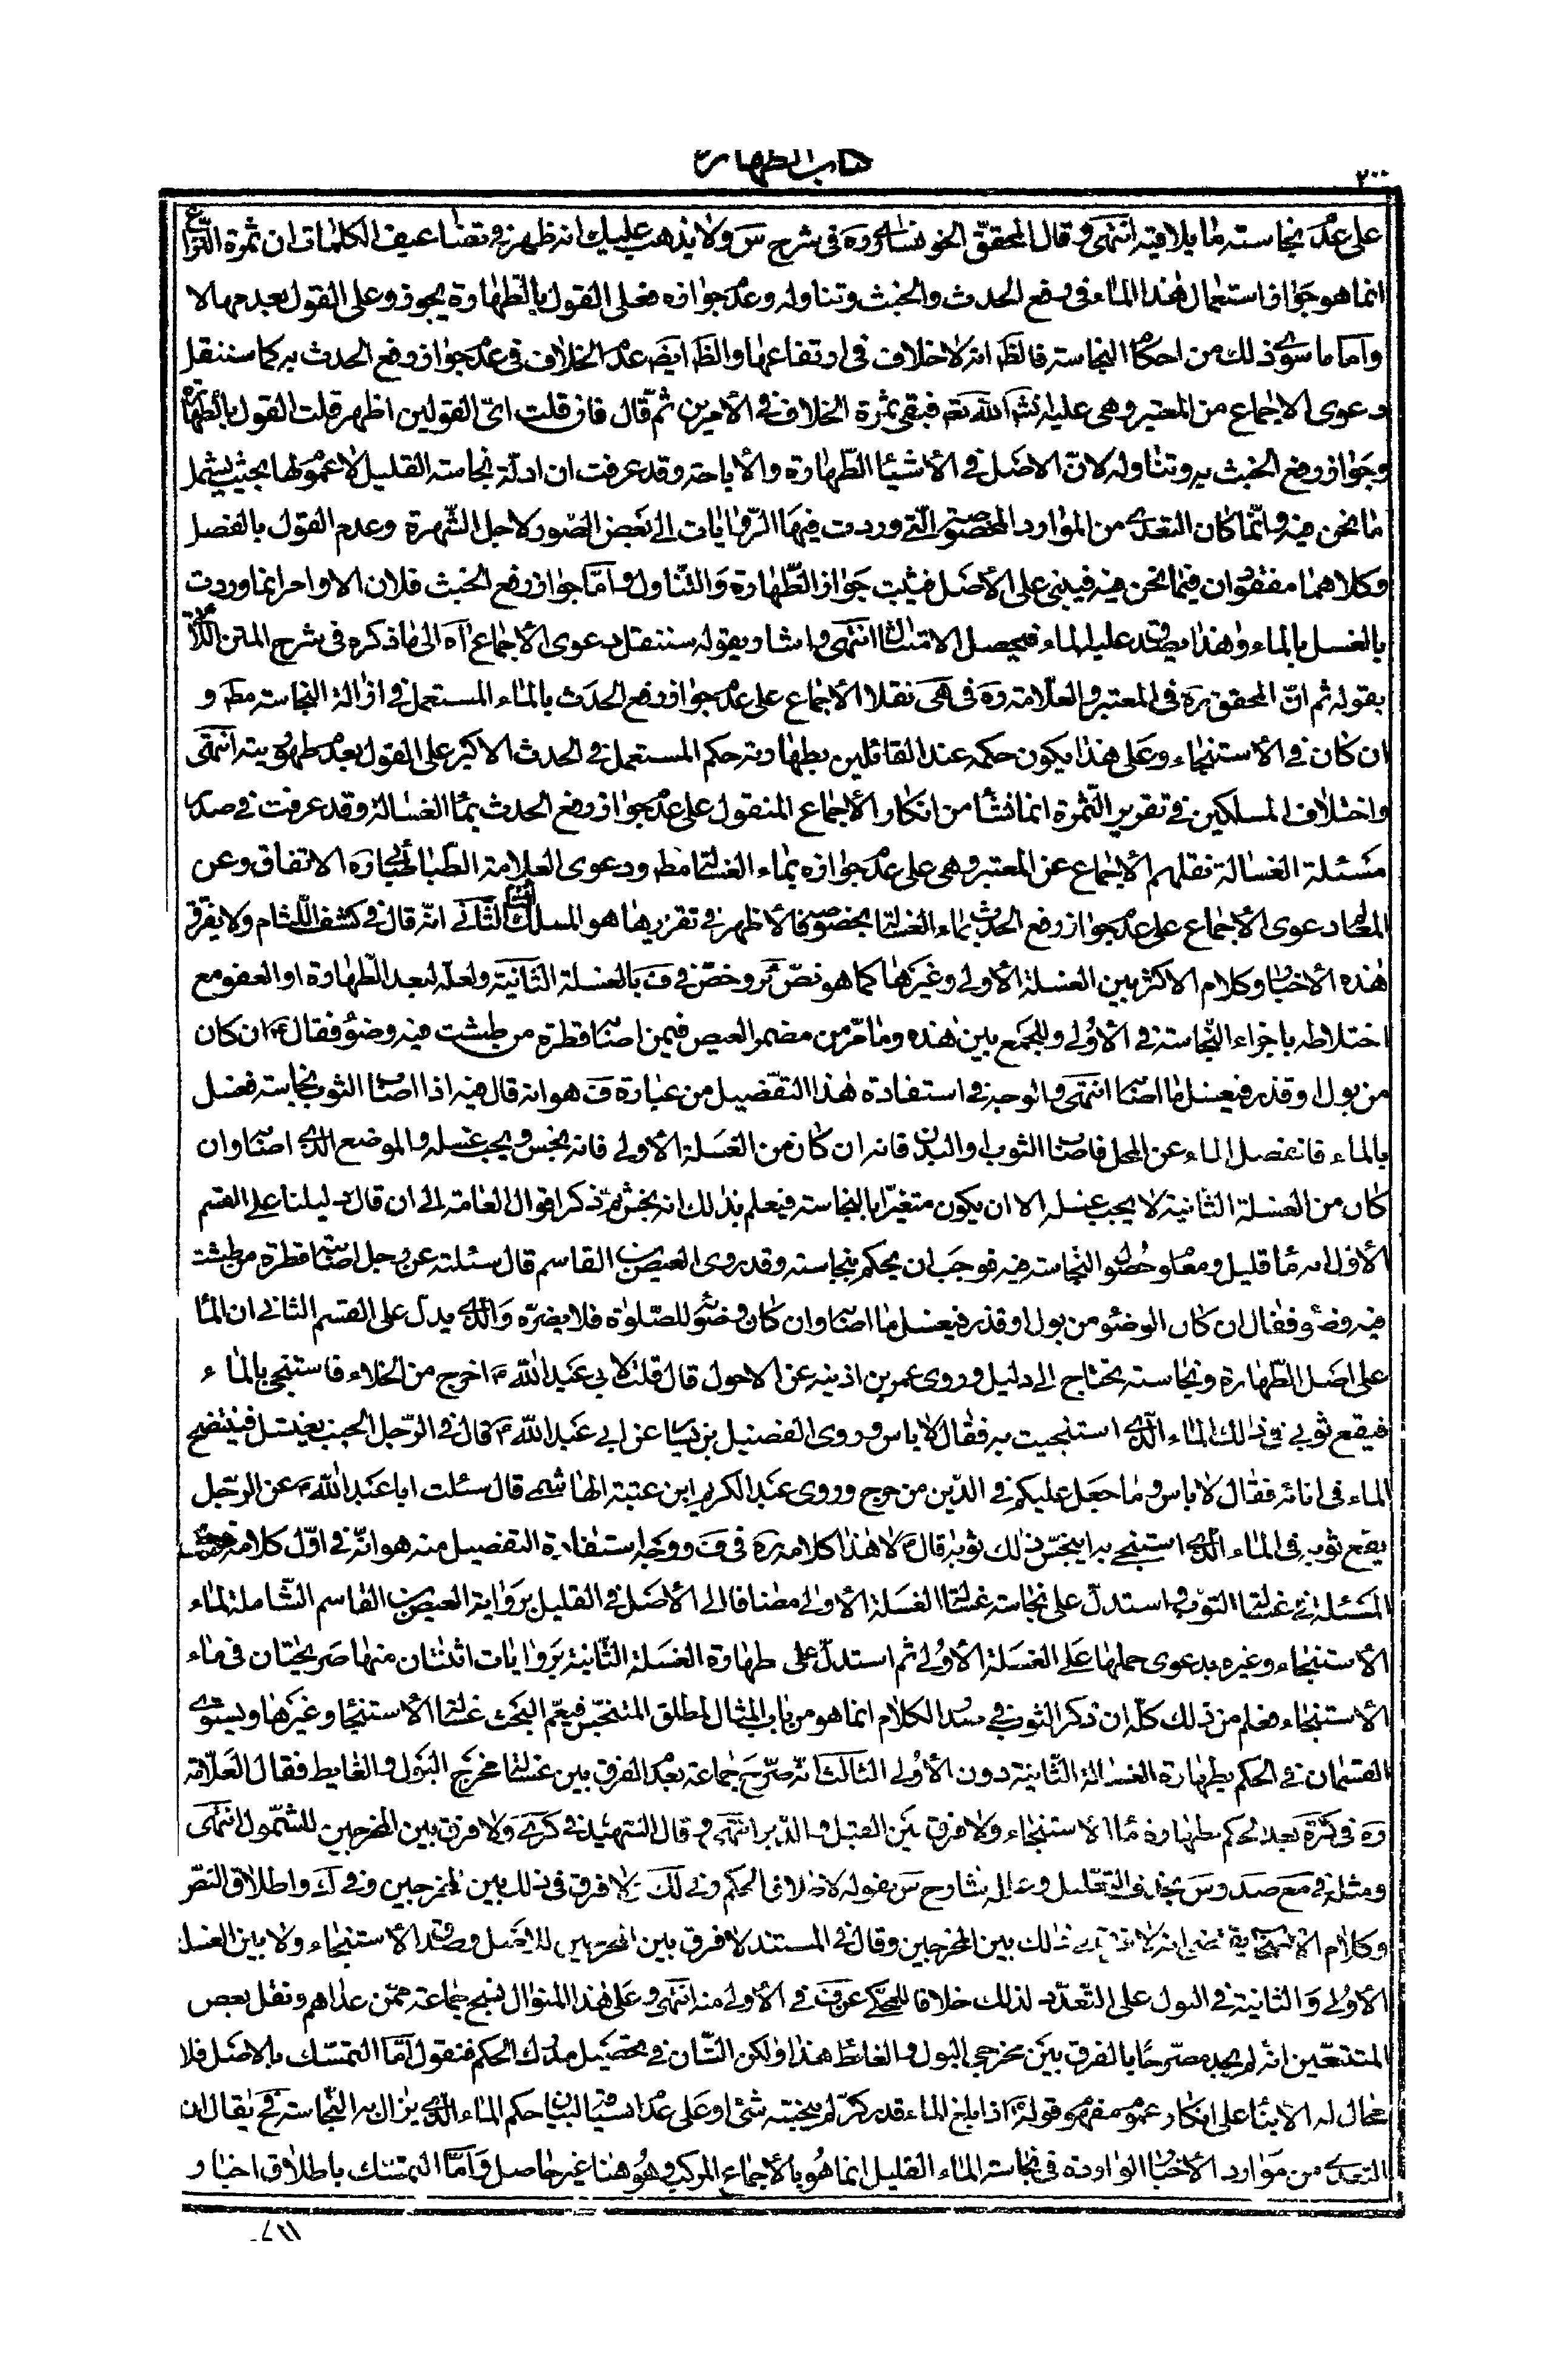 كتاب الطهارة
٢٠٠
على عدم نجاسته ما يلاقيه انتهى وقال المحقق الخونساری ره فى شرح س ولا يذهب عليك انه ظهر فى تضاعيف الكلمات ان ثمرة النزاع
انما هو جواز استعمال هذا الماء فى رفع الحدث والخبث وتناوله وعدم جوازه فعلى القول بالطهارة يجوز وعلى القول بعدمها لا
واما ما سوى ذلك من احكام النجاسة فالظ انه لا خلاف فى ارتفاعها والظ ايض عدم الخلاف فى عدم جواز رفع الحدث به كما سننقل
دعوى الاجماع من المعتبر وهى عليه نش الله تعه فبقى ثمرة الخلاف فى الأمرين ثم قال فان قلت اىّ القولين اظهر قلت القول بالطهارة
وجواز رفع الخبث به وتناوله لانّ الاصل فى الأشياء الطهارة والأباحة وقد عرفت ان ادلّة نجاسة القليل لا عموم لها بحيث يشمل
ما نحن فيه وانّما كان التعدى من المواد المخصوصة التى وردت فيها الروايات الى بعض الصور لاجل الشهرة وعدم القول بالفصل
وكلاهما مفقودان فيما نحن فيه فيبنى على الأصل فيثبت جواز الطهارة والتناول وامّا جواز رفع الخبث فلان الاوامر انما وردت
بالغسل بالماء وهذا يصدق عليه الماء فيحصل الامتثال انتهى واشار بقوله سننقل دعوى الأجماع آه الى ما ذكره فى شرح المتن
بقوله ثم انّ المحقق ره فى المعتبر والعلامة ره فى هى نقلا الأجماع على عدم جواز رفع الحدث بالماء المستعمل فى ازالة النجاسة مط و
ان كان فى الأستنجاء وعلى هذا يكون حكمه عند القائلين بطهارته حكم المستعمل فى الحدث الاكبر على القول بعدم طهوريته انتهى
واختلاف المسلكين فى تقرير الثمرة انما نشأ من انكار الأجماع المنقول على عدم جواز رفع الحدث بماء الغسالة وقد عرفت فى صدر
مسئلة الغسالة نقلهم الأجماع عن المعتبر وهى على عدم جوازه بماء الغسالة مط ودعوى العلامة الطباطبائى ره الاتفاق وعن
المعالم دعوى الأجماع على عدم جواز رفع الحدث بماء الغسالة بخصوصه فالأظهر فى تقريرها هو المسلك الثانى انه قال فى كشف اللثام ولا يفرق
هذه الأخبار وكلام الاكثر بين الغسلة الأولى وغيرها كما هو نصّ ئر وخصّ فى ف بالغسلة الثانية ولعله لبعد الطهارة او العفو مع
اختلاطه باجزاء النجاسة فى الأولى وللجمع بين هذه وما مرّ من مضمر العيص فيمن اصابه قطرة من طشت فيه وضؤ فقال ع ان كان
من بول او قذر فيغسل ما اصابه انتهى والوجه فى استفادة هذا التفصيل من عبارة ف هو انه قال فيه اذا اصاب الثوب نجاسة فغسل
بالماء فانفصل الماء عن المحل فاصاب الثوب او البدن فانه ان كان من الغسلة الأولى فانه نجس ويجب غسله والموضع الذى اصابه وان
كان من الغسلة الثانية لا يجب غسله الا ان يكون متغيرا بالنجاسة فيعلم بذلك انه نجس ثم ذكر اقوال العامة الى ان قال دليلنا على القسم
الأول انه ماء قليل ومعلوم حصول النجاسة فيه فوجب ان يحكم بنجاسته وقد روى العيص بن القاسم قال سئلته عن رجل اصابته قطرة من طشت
فيه وضؤ فقال ان كان الوضؤ من بول او قذر فيغسل ما اصابه وان كان وضؤ للصلوة فلا يضره والذى يدل على القسم الثانى ان الماء
على اصل الطهارة ونجاسته يحتاج الى دليل وروى عمر بن اذينه عن الاحول قال قلت لابى عبد الله ع اخرج من الخلاء فاستنجى بالماء
فيقع ثوبى فى ذلك الماء الذى استنجيت به فقال لا باس وروى الفضيل بن يسار عن ابى عبد الله ع قال فى الرجل الجنب يغتسل فينتضح
الماء فى انائه فقال لا باس وما جعل عليكم فى الدين من حرج وروى عبد الكريم ابن عتبة الهاشمى قال سئلت ابا عبد الله ع عن الرجل
يقع ثوبه فى الماء الذى استنجى به اينجس ذلك ثوبه قال ع لا هذا كلامه ره فى ف ووجه استفادة التفصيل منه هو انه فى اول كلامه
المسئلة فى غسالة الثوب واستدل على نجاسة غسالة الغسلة الأولى مضافا الى الأصل فى القليل برواية العيص بن القاسم الشاملة لماء
الأستنجاء وغيره بدعوى حملها على الغسلة الأولى ثم استدل على طهارة الغسلة الثانية بروايات اثنتان منها صريحتان فى ماء
الأستنجاء فعلم من ذلك كله ان ذكر الثوب فى صدر الكلام انما هو من باب المثال لمطلق المتنجس فيعم البحث غسالة الأستنجاء وغيرها ويستوى
القسمان فى الحكم بطهارة الغسالة الثانية دون الأولى الثالث انه صرّح جماعة بعدم الفرق بين غسالة مخرج البول والغايط فقال العلامة
ره فى كرة بعد الحكم بطهارة ماء الاستنجاء ولا فرق بين القبل والدبر انتهى وقال الشهيد فى كرى ولا فرق بين المخرجين للشمول انتهى
ومثله فى مع صد وس بحذف التعليل وعلله شارح س بقوله لاطلاق الحكم وفى لك لا فرق فى ذلك بين المخرجين وفى ك واطلاق النص
وكلام الأصحاب يقتضى انه لا فرق فى ذلك بين المخرجين وقال فى المستند لا فرق بين المخرجين للاصل وصدق الأستنجاء ولا بين الغسلة
الأولى والثانية فى البول على التعدد لذلك خلافا للمحكى عن ف فى الأولى منه انتهى وعلى هذا المنوال نسج جماعة ممّن عداهم ونقل بعض
المتتبعين انه لم يجد مصرحا بالفرق بين مخرجى البول والغائط هذا ولكن الشان فى تحصيل مدرك الحكم فنقول امّا التمسك بالاصل فلا
مجال له الا بناء على انكار عموم مفهوم قوله ع اذا بلغ الماء قدر كرّ لم ينجسه شئ او على عدم استيفاء البيان حكم الماء الذى يزال به النجاسة فح يقال ان
التعدى من موارد الأخبار الواردة فى نجاسة الماء القليل انما هو بالأجماع المركب وهو هنا غير حاصل وامّا التمسك باطلاق اخبار